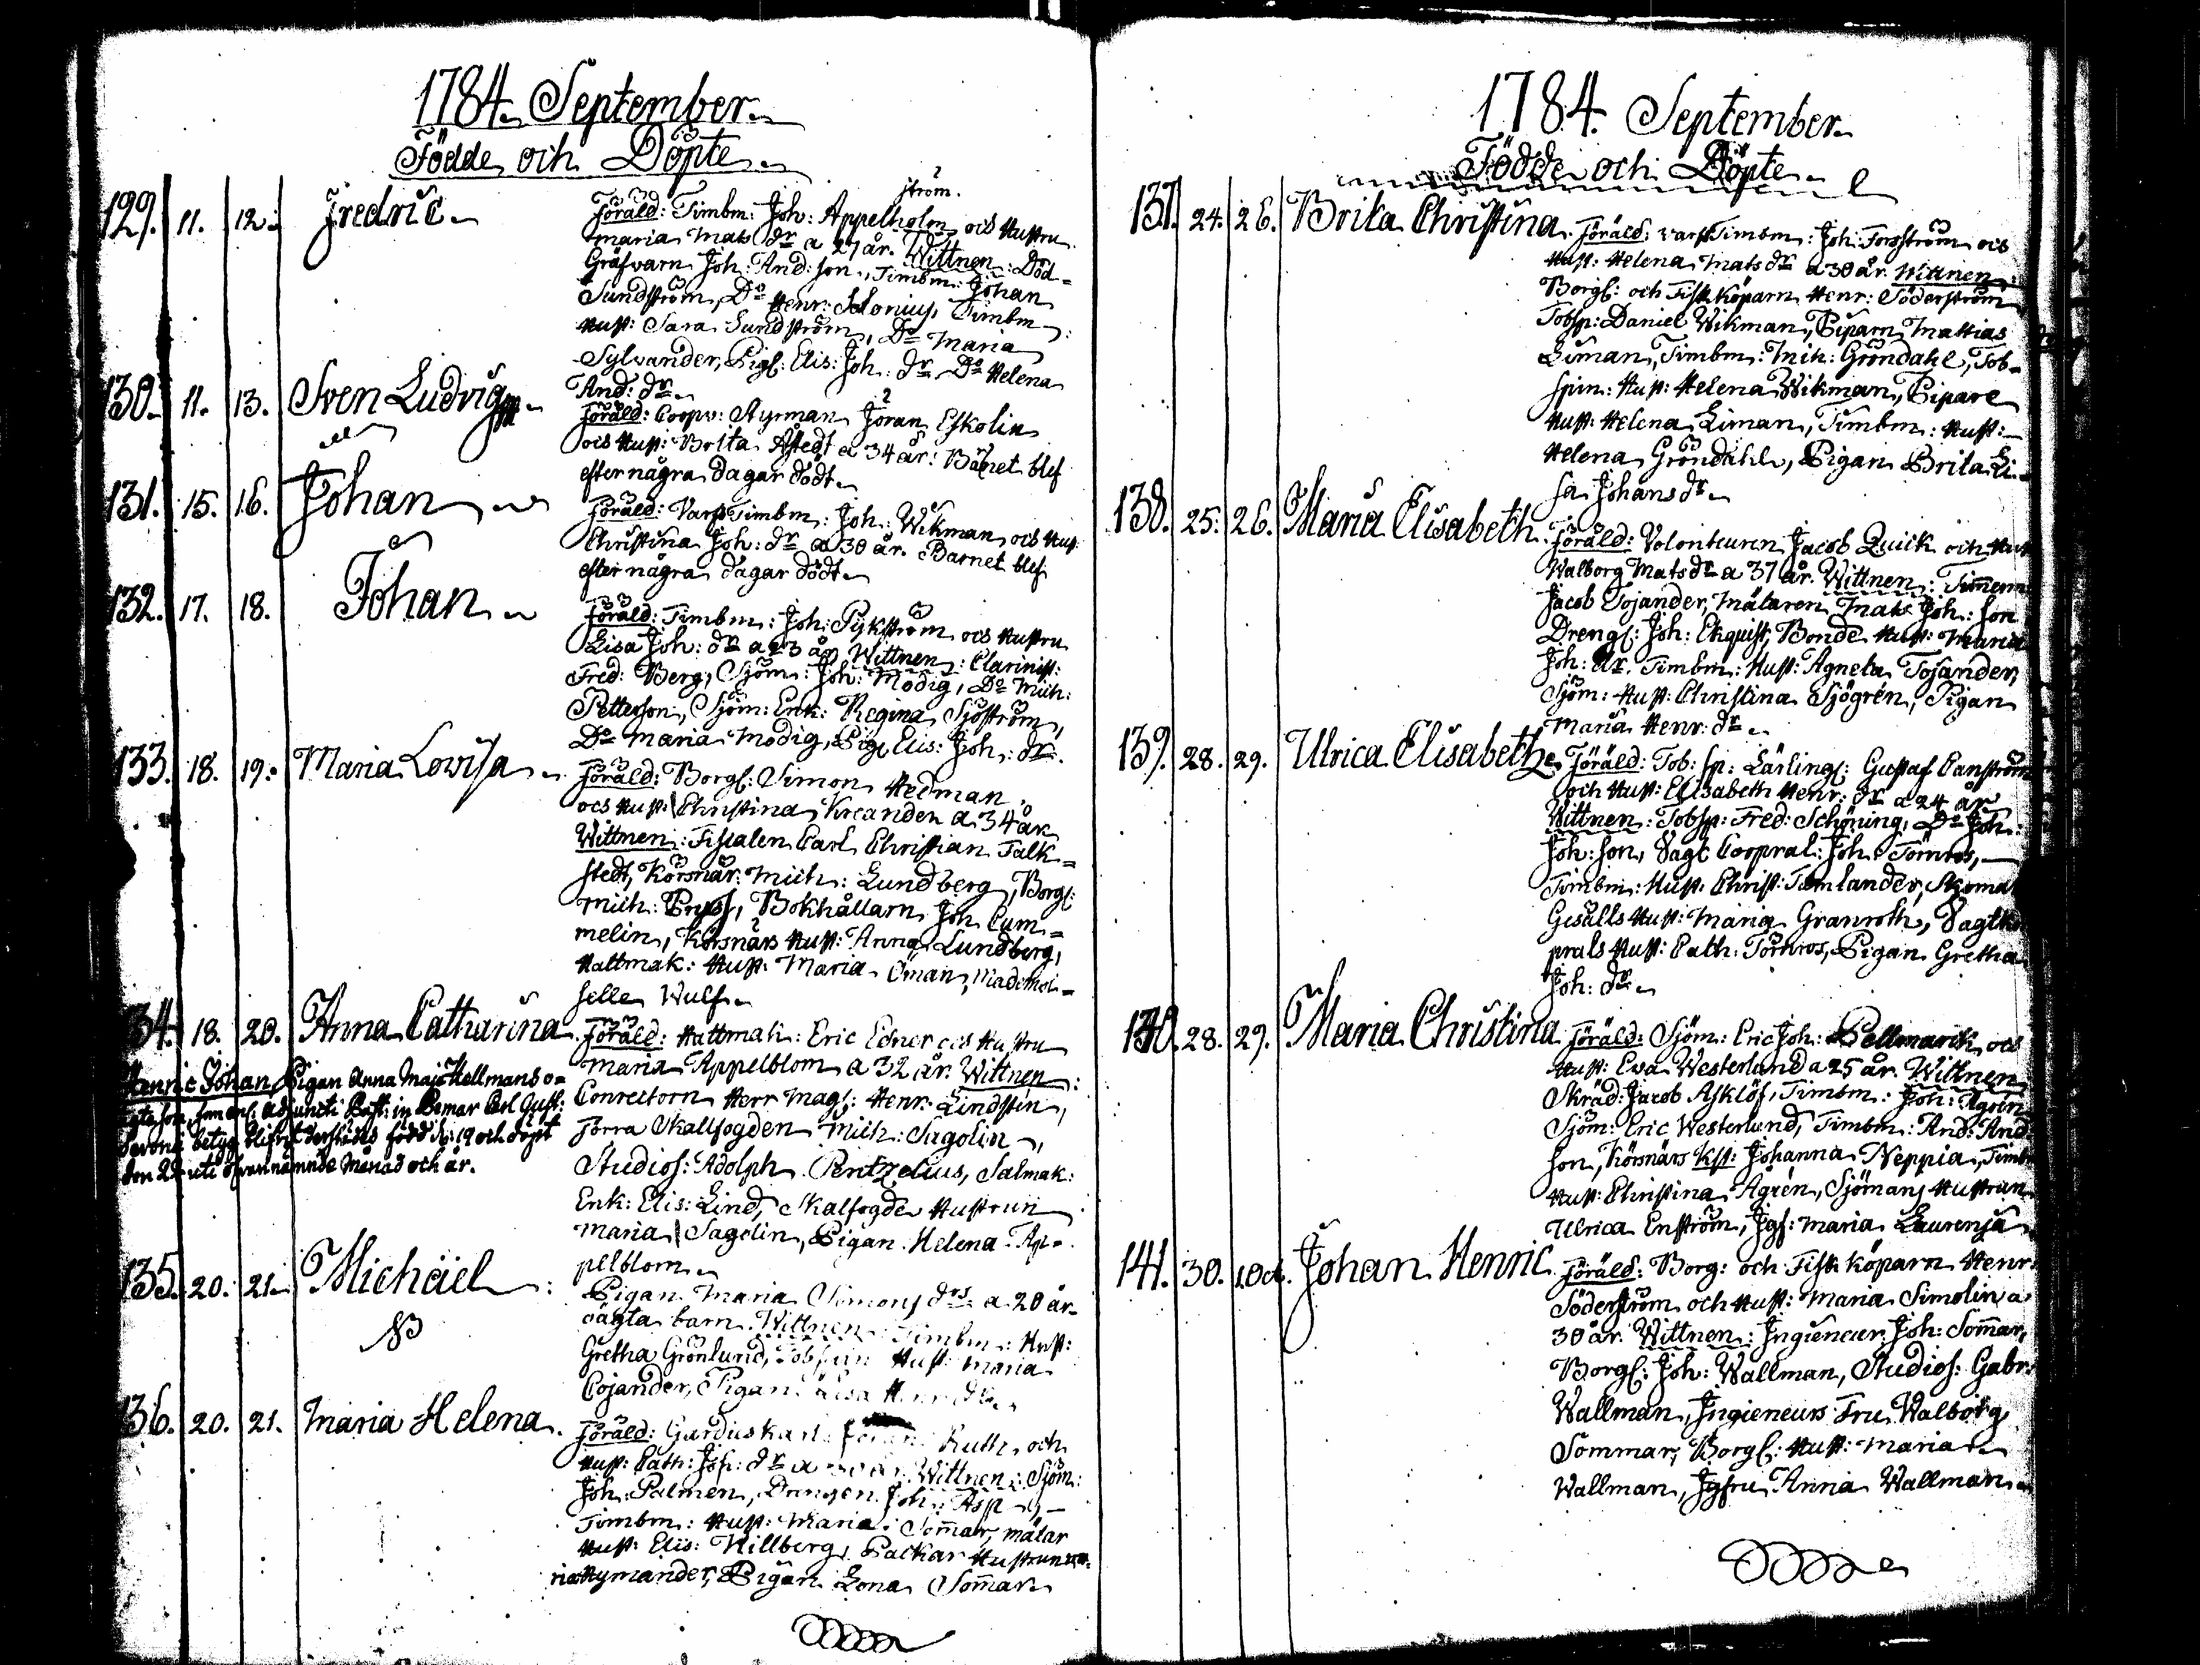 1784. September.
Födde och Döpte.
129. 11. 12. Fredric.
ström.
Föräld: Timbm: Joh: Appelholm och Hustru
Maria Mats dr a 27 år. Wittnen: Död-
Gräfvarn Joh: And: son, Timbm: Johan
Sundström, Do Henr: Slonius, Timbm:
Hust: Sara Sundström, Do Maria
Sylvander, Pig: Elis: Joh: dr Do Helena
And: dr
130. 11. 13. Sven Ludvig
Föräld: Coopv: Styrman Jöran Eskolin
och Hust: Brita Åstedt a 34 år: Barnet blef
efter några dagar dödt.
131. 15. 16. Johan
Föräld: Varfs Timbm: Joh: Wikman och Hust:
Christina Joh: dr a 30 år. Barnet blef
efter några dagar dödt.
132. 17. 18. Johan
Föräld: Timbm: Joh: Rykström och Hustru
Lisa Joh: dr a 23 år Wittnen: Clarinist:
Fred: Berg, Sjöm: Joh: Modig, Do Mich:
Petterson, Sjöm: Enk: Regina Sjöström,
Do Maria Modig, Pig Elis: Joh: dr.
133. 18. 19. Maria Lovisa
Föräld: Borgl: Simon Hedman
och Hust: Christina Kreander a 34 år
Wittnen: Fiscalen Carl Christian Falk-
stedt, Körsnär: Mich: Lundberg, Borgl:
Mich: Pryss, Bokhållarn Joh Cum-
melin, Körsnärs Hust: Anna Lundberg,
Hattmak: Hust: Maria Öman, Mademoi-
selle Wulf
134. 18. 20. Anna Catharina
Föräld: Hattmak: Eric Edner och Hustru
Maria Appelblom a 32 år. Wittnen:
Conrectorn Herr Mag: Henr: Lindsten,
Förra Skallfogden Mich: Sagolin,
Studios: Adolph Pentzelius, Salmak:
Enk: Elis: Lind, Skalfogde Hustrun
Maria Sagolin, Pigan Helena Ap-
pelblom
Henric Johan Pigan Anna Maja Hellmans o-
ägta son, som enl: Adjuncti Past: in Pemar Carl Gust:
betyg blifvit derstädes född d: 19 och döpt
den 22 uti ofvannämnde Månad och år.
135. 20. 21. Michäel
Pigan Maria Simons drs a 20 år
oägta barn. Wittnen Timbm: Hust:
Gretha Grönlund, Tobspin: Hust: Maria
Cojander, Pigan Lisa
136. 20. 21. Maria Helena
Föräld: Ruth och
Hust: Cath: Joh: dr a 30 år. Wittnen: Sjöm:
Joh: Palmen, Drengen Joh: Asp,
Timbm: Hust: Maria Sommar, målar
Hust: Elis: Hillberg, Packar Hustrun Ma-
ria Nymander, Pigan Lena Sommar

1784. September.
Födde och Döpte
137. 24. 26. Brita Christina
Föräld: Varfs Timbm: Joh: Forsström och
Hust: Helena Mats dr a 30 år. Wittnen:
Borgl: och Fisk Köparn Henr: Söderström
Tobsp: Daniel Wikman, Piparn Mattias
Liman, Timbm: Mich: Gröndahl, Tob-
spin: Hust: Helena Wikman, Pipare
Hust: Helena Liman, Timbm: Hust:
Helena Gröndahl, Pigan Brita Li-
sa Johans dr
138. 25. 26. Maria Elisabeth
Föräld: Volonteuren Jacob Quick och Hust
Walborg Mats dr a 37 år. Wittnen: Timerm
Jacob Tojander, Målaren Mats Joh: son
Drengl: Joh: Ekquist, Bonde Hust: Maria
Joh: dr. Timbm: Hust: Agneta Tojander,
Sjöm: Hust: Christina Sjögrén, Pigan
Maria Henr: dr
139. 28. 29. Ulrica Elisabeth
Föräld: Tob: sp: Lärling: Gustaf Canström
och Hust: Elisabeth Henr: dr a 24 år
Wittnen: Tobsp: Fred: Schöning, Do Joh:
Joh: son, Vagt Coopral: Joh: Törnros,
Timbm: Hust: Christ: Tamlander, Skomak
Gesälls Hust: Maria Granroth, Vagtko
prals Hust: Cath: Törnros, Pigan Gretha
Joh: dr
140. 28. 29. Maria Christina
Föräld: Sjöm: Eric Joh: Pellmarck och
Hust: Eva Westerlund a 25 år. Wittnen
Skräd: Jacob Asklöf, Timbm: Joh: Ågrén
Sjöm: Eric Westerlund, Timbm: And: And
son, Körsnärs Kst: Johanna Neppia, Timb
Hust: Christina Ågrén, Sjömans Hustrun
Ulrica Enström, Jgf: Maria Laurensa
141. 30. 1.Oct. Johan Henric
Föräld: Borg: och Fisk Köparn Henr:
Söderström och Hust: Maria Simolin a
30 år. Wittnen: Ingieneur Joh: Somar,
Borgl: Joh: Wallman, Studios: Gabr:
Wallman, Ingieneurs Fru Walborg
Sommar, Borgl: Hust: Maria
Wallman, Jgfru Anna Wallman